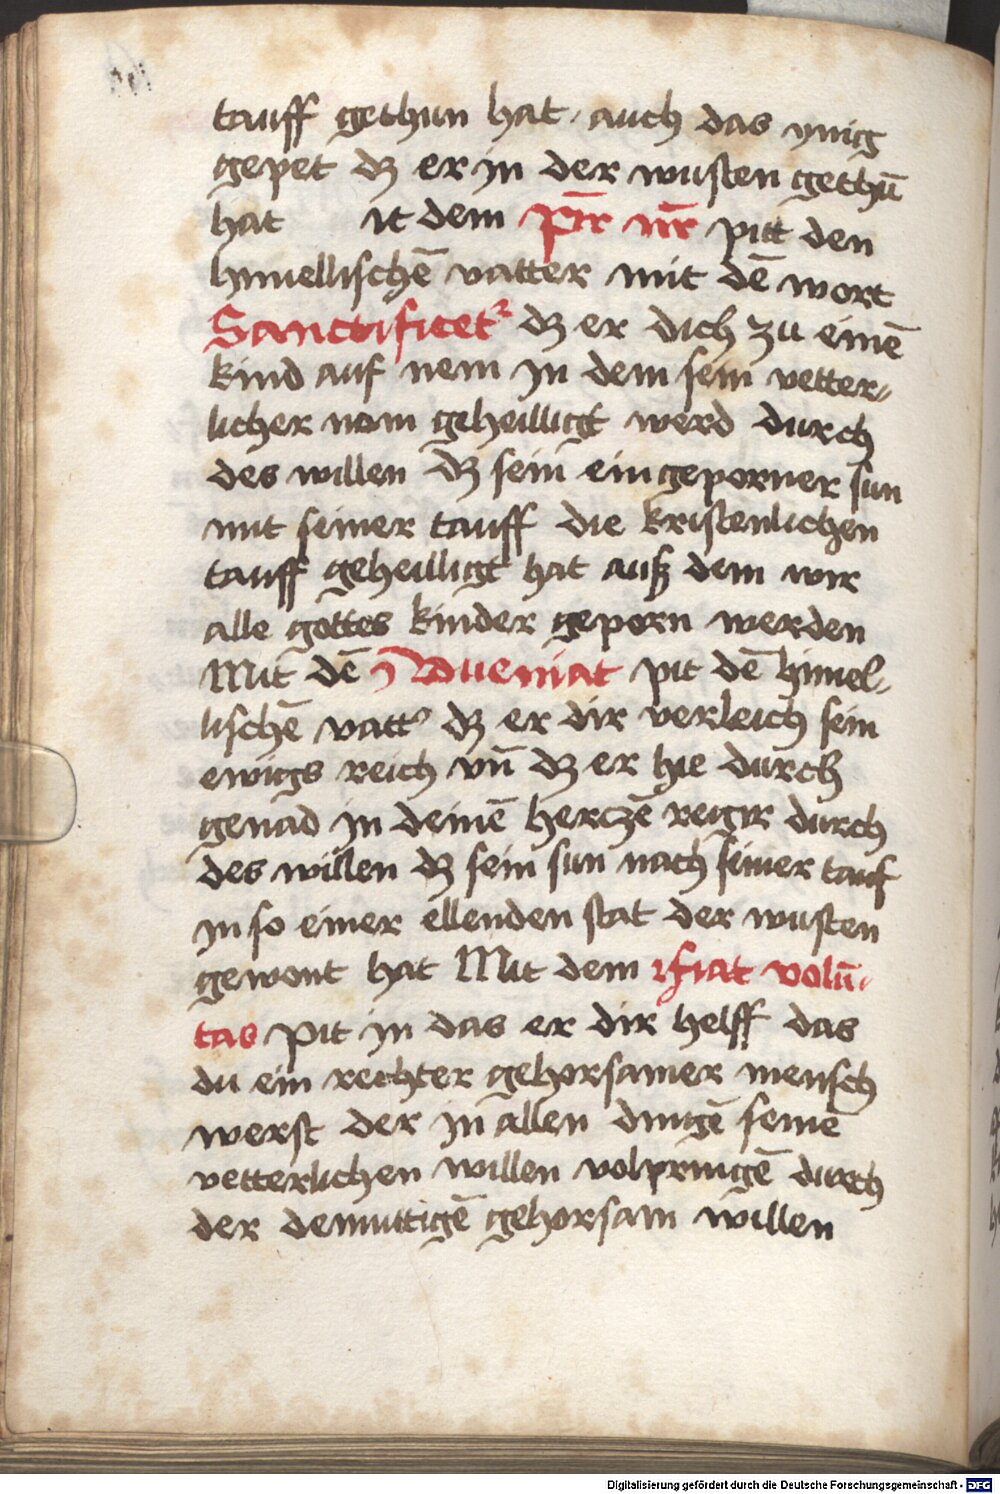 tauff gethun hat · auch das ynig
gepet dz er in der wusten gethū
hat it dem pr̄r nr̄ pitt den
himellischē vatter mit dē wort
Sanctificet² dz er dich zu einē
kind auf nem jn dem sein vetter⸗
licher nam geheilligt werd durch
des willen dz sein eingeporner sun
mit seiner tauff die kristenlichen
tauff geheilligt hat auß dem wir
alle gottes kinder geporn werden
Mit dē Adueniat pit dē himel⸗
lischē vatt᾿ dz er dir verleich sein
ewigs reich vn̄ dz er hie durch
genad jn deinē herczē regir durch
des willen dz sein sun nach seiner tauf
jn so einer ellenden stat der wusten
gewont hat Mit dem fiat volū⸗
tas pit jn das er dir helff das
du ein rechter gehorsamer mensch
werst der jn allen dingē seinē
vetterlichen willen volpringē durch
der demuttigē gehorsam willen
Digitalisierung gefördert durch die Deutsche Forschungsgemeinschaft - DFG